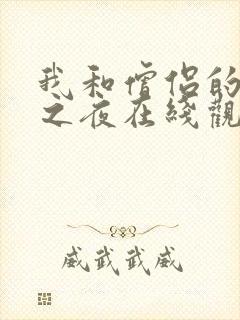 我和僧侣的
之夜在綫觀
威武武威